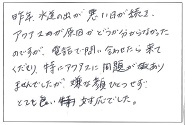 昨年 水道の出が悪い日が続き、
アクアスの方原因かどうか分からなかった
のですが、電話で問い合わせたら来て
くださり、特にアクアスに問題が有あり
ませんでしたが嫌な顔ひとつせず
とても良い対応でした。